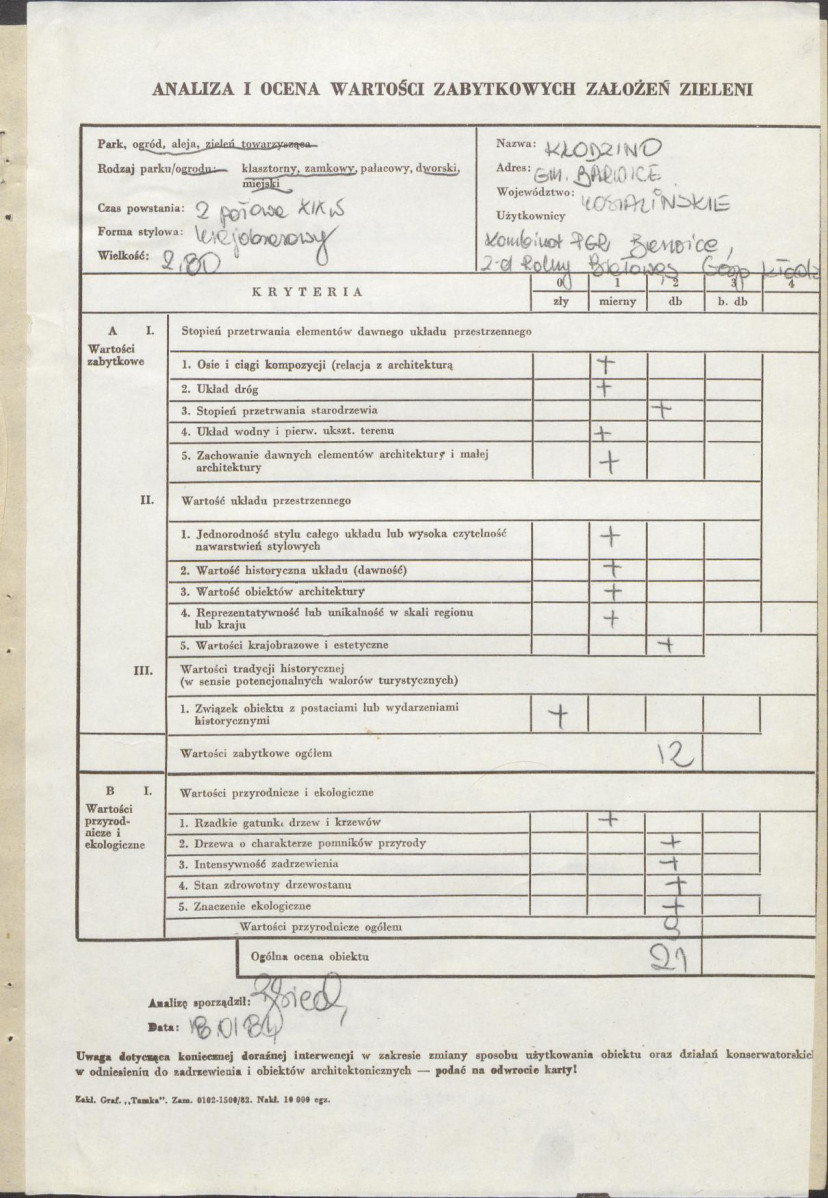 ANALIZA I OCENA WARTOŚCI ZABYTKOWYCH ZAŁOŻEŃ ZIELENI
Park, ogród, aleja, zieleń towarzysząca
Rodzaj parku/ogrodu: klasztorny, zamkowy, pałacowy, dworski,
miejski
Czas powstania: 2 połowa XIX w
Forma stylowa: krajobrazowy
Wielkość: 2,80
Nazwa: KŁODZINO
Adres: GM. BARWICE
Województwo: KOSZALIŃSKIE
Użytkownicy
Kombinat PGR Barwice,
Z-d Rolny Gosp
KRYTERIA
0 1 2 3 4
zły mierny db b. db
A I. Stopień przetrwania elementów dawnego układu przestrzennego
Wartości
zabytkowe
1. Osie i ciągi kompozycji (relacja z architekturą +
2. Układ dróg +
3. Stopień przetrwania starodrzewia +
4. Układ wodny i pierw. ukszt. terenu +
5. Zachowanie dawnych elementów architektury i małej
architektury +
II. Wartość układu przestrzennego
1. Jednorodność stylu całego układu lub wysoka czytelność
nawarstwień stylowych +
2. Wartość historyczna układu (dawność) +
3. Wartość obiektów architektury +
4. Reprezentatywność lub unikalność w skali regionu
lub kraju +
5. Wartości krajobrazowe i estetyczne +
III. Wartości tradycji historycznej
(w sensie potencjonalnych walorów turystycznych)
1. Związek obiektu z postaciami lub wydarzeniami
historycznymi +
Wartości zabytkowe ogółem 12
B I. Wartości przyrodnicze i ekologiczne
Wartości
przyrod-
nicze i
ekologiczne
1. Rzadkie gatunki drzew i krzewów +
2. Drzewa o charakterze pomników przyrody +
3. Intensywność zadrzewienia +
4. Stan zdrowotny drzewostanu +
5. Znaczenie ekologiczne +
Wartości przyrodnicze ogółem 9
Ogólna ocena obiektu 21
Analizę sporządził:
Data: 18.01.84
Uwaga dotycząca koniecznej doraźnej interwencji w zakresie zmiany sposobu użytkowania obiektu oraz działań konserwatorskic
w odniesieniu do zadrzewienia i obiektów architektonicznych — podać na odwrocie karty!
Zakł. Graf. „Tamka". Zam. 0102-1500/82. Nakł. 10 000 egz.